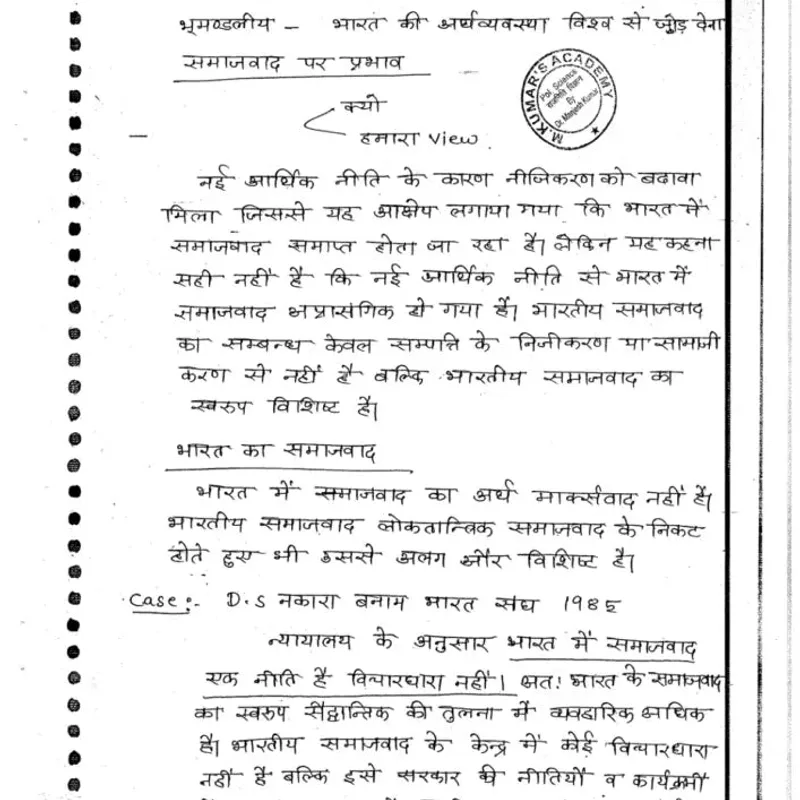 भूमण्डलीय – भारत की अर्थव्यवस्था विश्व से जोड़ देना
समाजवाद पर प्रभाव
क्यो
हमारा View.
M.KUMAR'S ACADEMY
Pol. Science
राजनीति विज्ञान
By
Dr. Manjesh Kumar
नई आर्थिक नीति के कारण नीजिकरण को बढावा
मिला जिससे यह आक्षेप लगाया गया कि भारत में
समाजवाद समाप्त होता जा रहा है। लेकिन यह कहना
सही नहीं है कि नई आर्थिक नीति से भारत में
समाजवाद अप्रासंगिक हो गया है। भारतीय समाजवाद
का सम्बन्ध केवल सम्पत्ति के निजीकरण या सामाजी
करण से नहीं है बल्कि भारतीय समाजवाद का
स्वरुप विशिष्ट है।
भारत का समाजवाद
भारत में समाजवाद का अर्थ मार्क्सवाद नहीं है।
भारतीय समाजवाद लोकतान्त्रिक समाजवाद के निकट
होते हुए भी उससे अलग और विशिष्ट है।
Case:- D.S नकारा बनाम भारत संघ 1985
न्यायालय के अनुसार भारत में समाजवाद
एक नीति है विचारधारा नहीं। अतः भारत के समाजवाद
का स्वरुप सैद्धान्तिक की तुलना में व्यवहारिक अधिक
है। भारतीय समाजवाद के केन्द्र में कोई विचारधारा
नहीं है बल्कि इसे सरकार की नीतियों व कार्यक्रमों